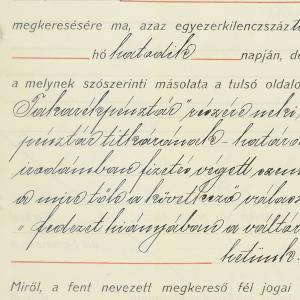 megkeresésére ma, azaz egyezerkilenczszáz
hó hatodik napján, de
a melynek szószerinti másolata a tulsó oldalo
Takarékpénztár" részére neki,
pénztár titkárának - határo
irodámban fizetés végett szem
a mire tőle a következő válasz
„fedezet hiányában a váltór
hetünk.
Miről, a fent nevezett megkereső fél jogai